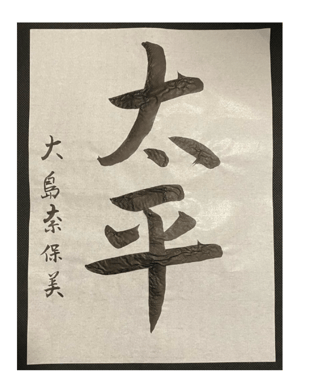 太平
大島奈保美